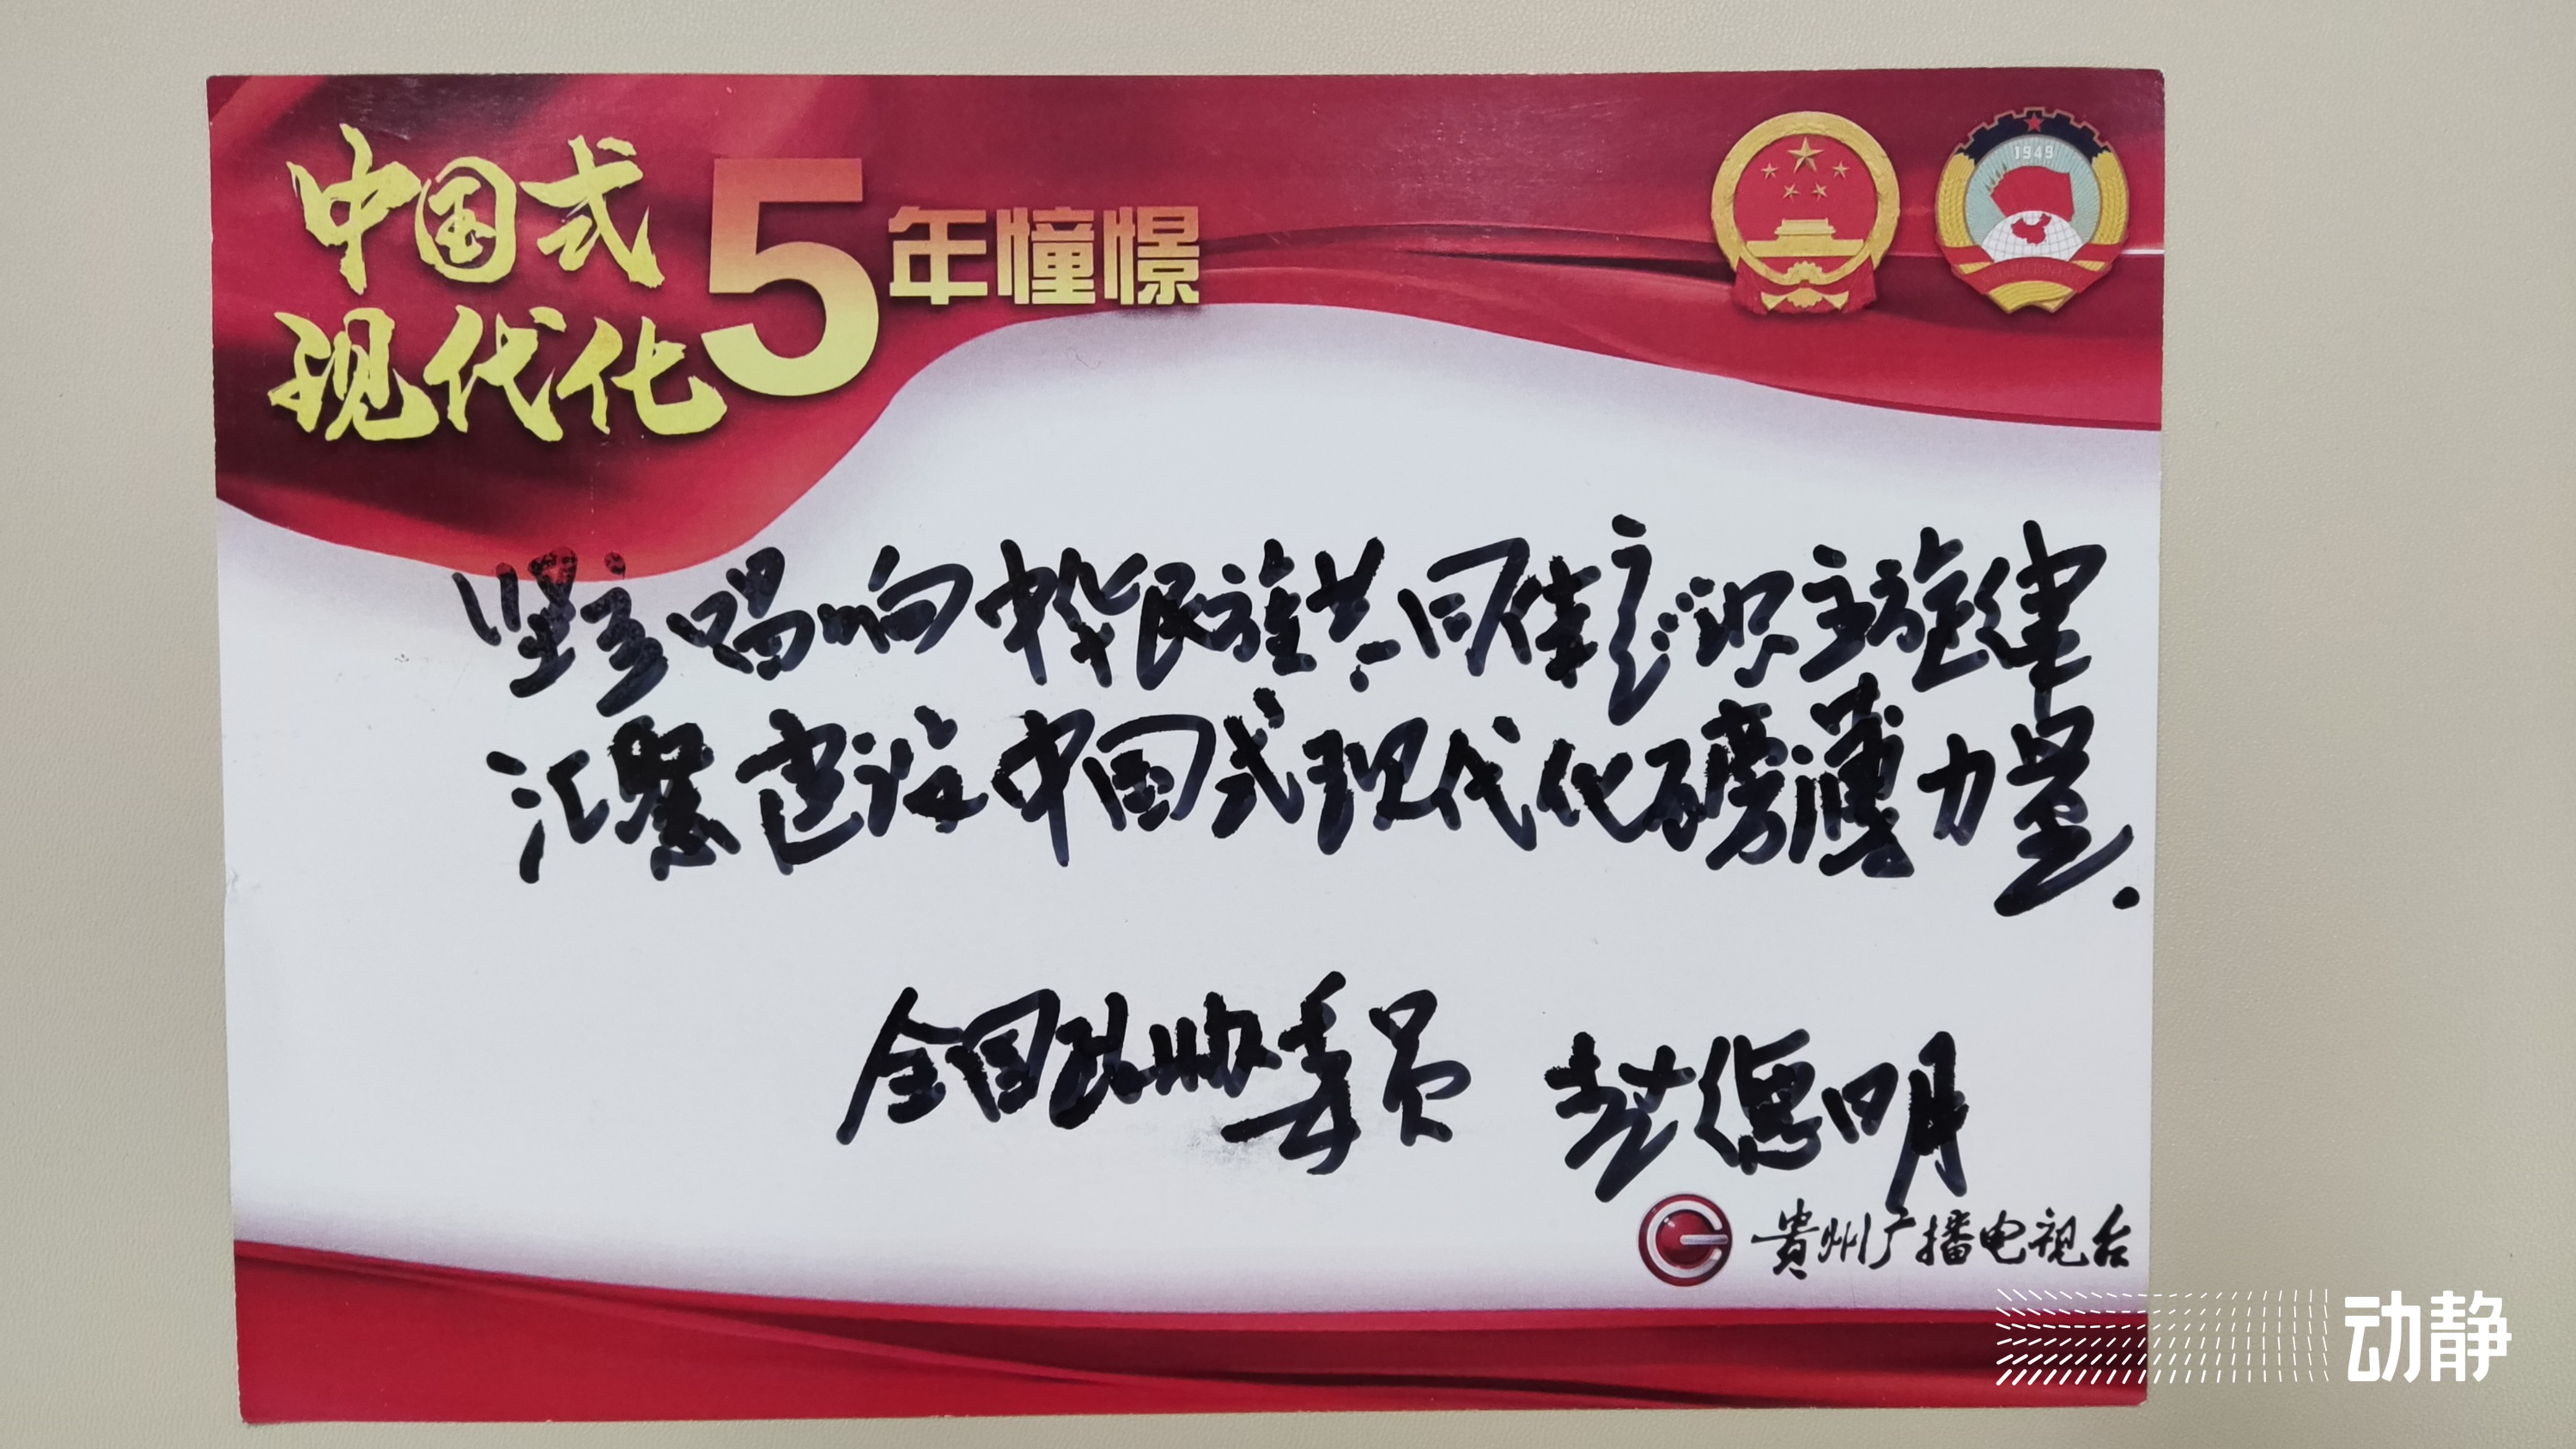 中国式
现代化
5年憧憬
1949
坚定唱响中华民族共同体意识主旋律
汇聚建设中国式现代化磅薄力量.
全国政协委员 赵德明
贵州广播电视台
动静